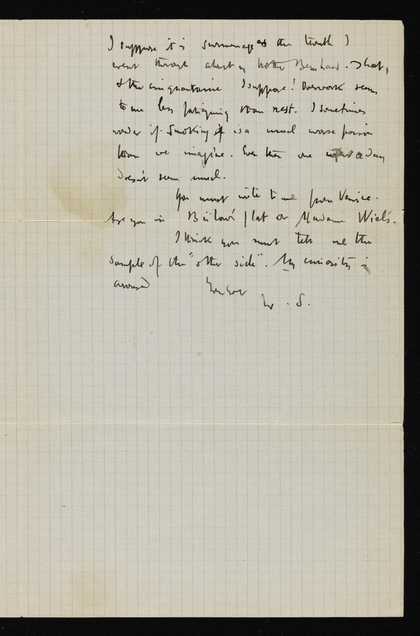 I suppose it is surmenage & the teeth I
went through abest my brother Bernhard. That,
& the cinquantaine I suppose! Overwork seems
to me less fatiguing than rest. I sometimes
wonder if smoking is a much worse poison
than we imagine. Even then one a day
doesn't seem much.
You must write to me from Venice.
Are you in Bülow's flat or Madame Wiel's.
I think you must tell me the
sample of the "other side". My curiosity is
aroused
Yours ever
. S.